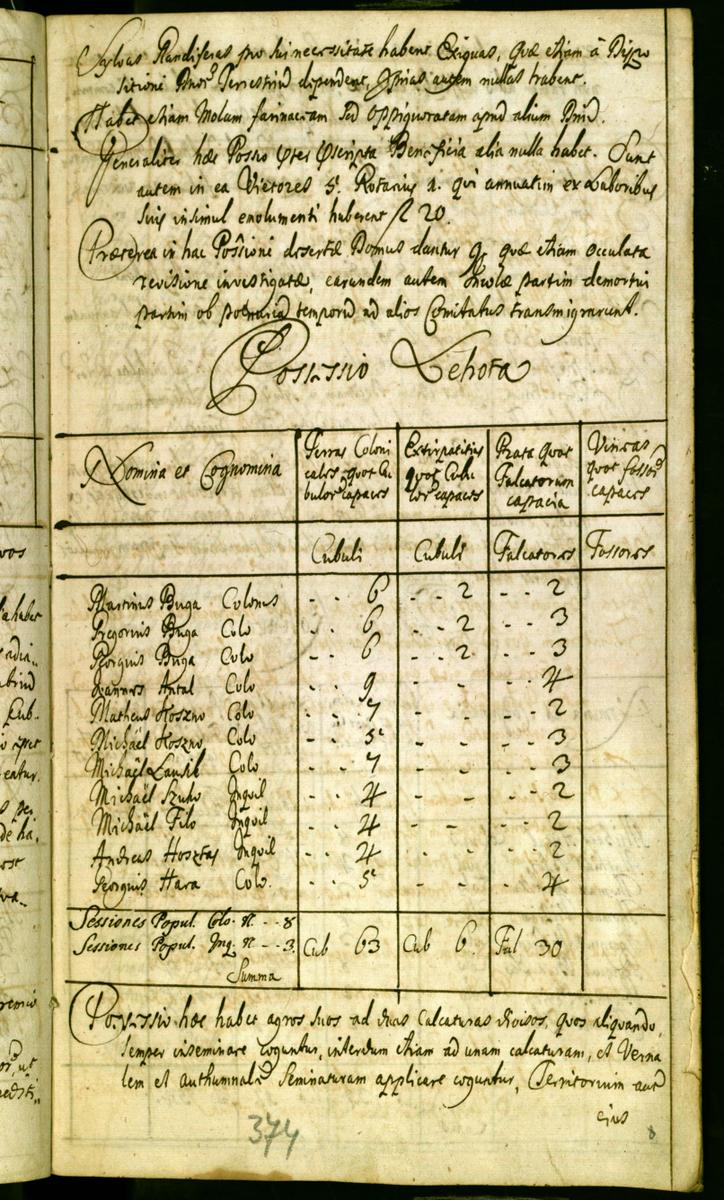 Sylvas Glandiferas pro sui necessitate habent Exiguas, quæ etiam â Dispo
sitione Dnor Terrestriũ dependent, autem nullas habent.
Habet etiam Molam farinaceam sed oppignoratam apud alium Dnũ.
Generaliter hæc Possio Beneficia alia nulla habet. Sunt
autem in ea Vietores 5. Rotarius 1. qui annuatim ex Laboribus
suis insimul emolumenti haberent fl 20.
Præterea in hac Possioni desertæ Domus dantur 9, quæ etiam occulata
revisione investigatæ, earundem autem Incolæ partim demortui
partim ob penuriã temporũ ad alios Comitatus transmigrarunt.
Possessio Lehota
Nomina et Cognomina
Terras Coloni
cales quot Cu
bulor capaces
Extirpatitias
quot Cubu
lor capaces
Prata quot
Falcatorum
capacia
Vineas
quot fossor
capaces
Cubuli Cubuli Falcatores Fossores
Martinus Buga Colonus - - 6 - - 2 - - 2
Gregorius Buga Colo - - 6 - - 2 - - 3
Georgius Buga Colo - - 6 - - 2 - - 3
Joannes Antal Colo - - 9 - - - - 4
Matheus Hoszno Colo - - 7 - - - - 2
Michaël Hoszno Colo - - 5 - - - - 3
Michaël Colo - - 7 - - - - 3
Michaël Szuho Inquil - - 4 - - - - 2
Michaël Filo Inquil - - 4 - - - - 2
Andreas Inquil - - 4 - - - - 2
Georgius Hara Colo. - - 5 - - - - 4
Sessiones Popul. Colo. N. - - 8
Sessiones Popul. Inq. N - - 3. Cub 63 Cub 6. Fal 30
Summa
Possessio hæc habet agros suos ad duas calcaturas divisos, quos aliquando
semper inseminare coguntur, interdum etiam ad unam calcaturam, et Verna
lem et authumnalẽ Seminaturam applicare coguntur, Territorium aut
ejus
374
8